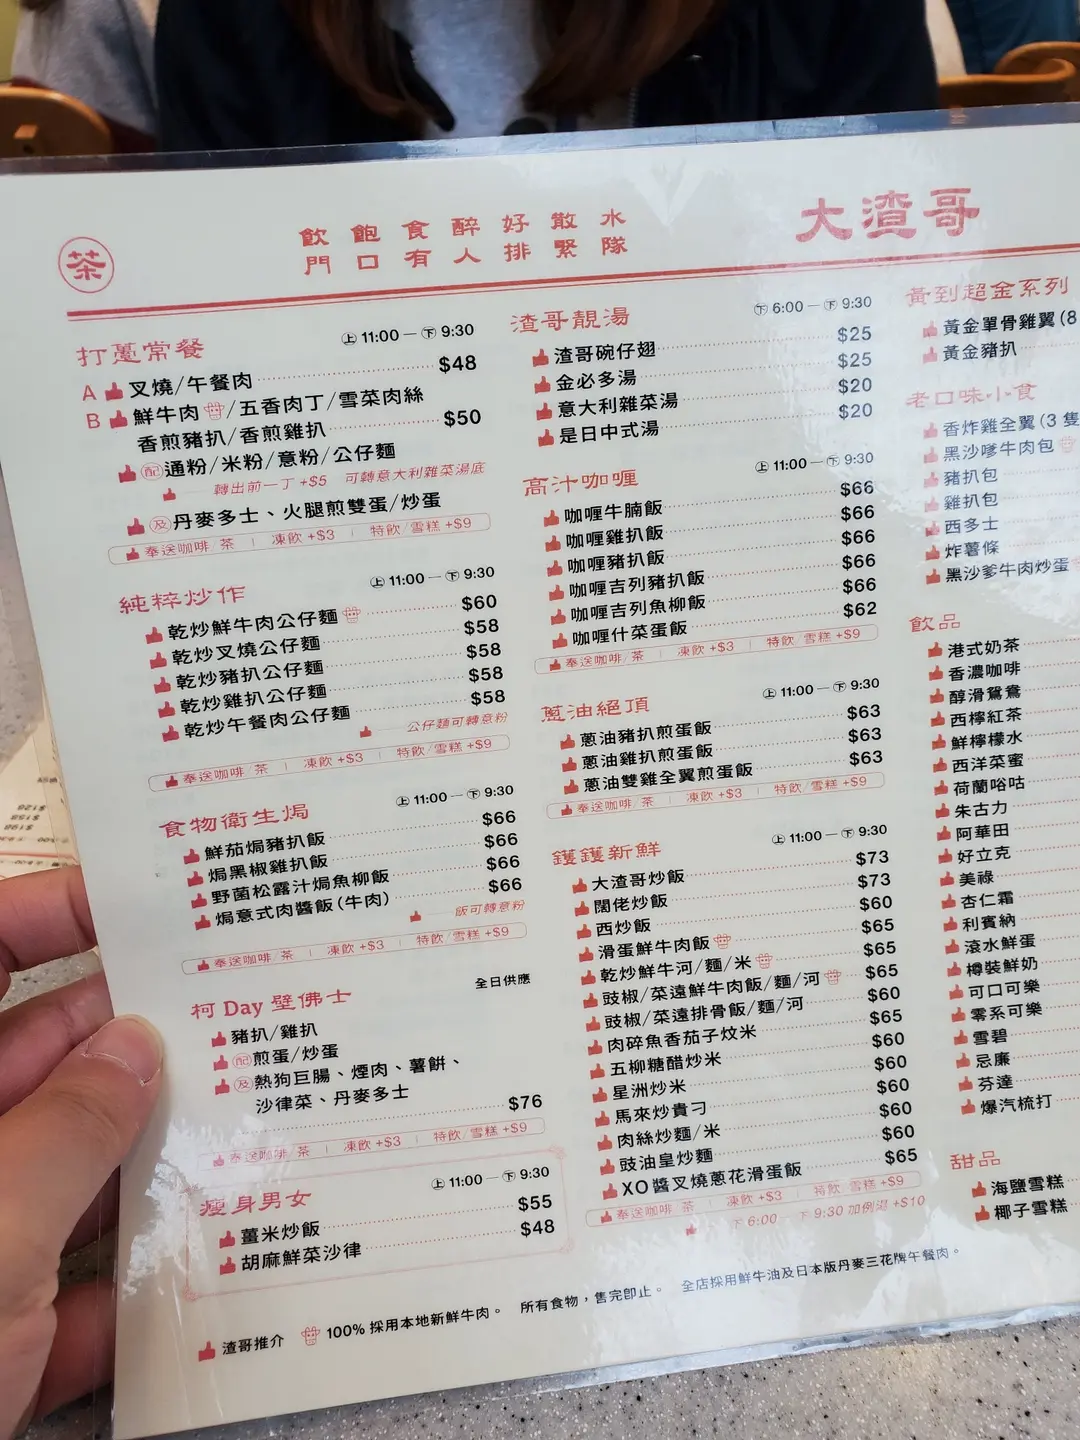 茶
飲飽食醉好散水
門口有人排緊隊
大渣哥
打躉常餐 上 11:00 — 下 9:30
A 叉燒/午餐肉 $48
B 鮮牛肉/五香肉丁/雪菜肉絲
香煎豬扒/香煎雞扒 $50
配 通粉/米粉/意粉/公仔麵
轉出前一丁 +$5 可轉意大利雜菜湯底
及 丹麥多士、火腿煎雙蛋/炒蛋
奉送咖啡/茶 | 凍飲 +$3 | 特飲/雪糕 +$9
純粹炒作 上 11:00 — 下 9:30
乾炒鮮牛肉公仔麵 $60
乾炒叉燒公仔麵 $58
乾炒豬扒公仔麵 $58
乾炒雞扒公仔麵 $58
乾炒午餐肉公仔麵 $58
公仔麵可轉意粉
奉送咖啡/茶 | 凍飲 +$3 | 特飲/雪糕 +$9
食物衛生焗 上 11:00 — 下 9:30
鮮茄焗豬扒飯 $66
焗黑椒雞扒飯 $66
野菌松露汁焗魚柳飯 $66
焗意式肉醬飯(牛肉) $66
飯可轉意粉
奉送咖啡/茶 | 凍飲 +$3 | 特飲/雪糕 +$9
柯 Day 壁佛士 全日供應
豬扒/雞扒
配 煎蛋/炒蛋
及 熱狗巨腸、煙肉、薯餅、
沙律菜、丹麥多士 $76
奉送咖啡/茶 | 凍飲 +$3 | 特飲/雪糕 +$9
瘦身男女 上 11:00 — 下 9:30
薑米炒飯 $55
胡麻鮮菜沙律 $48
渣哥靚湯 下 6:00 — 下 9:30
渣哥碗仔翅 $25
金必多湯 $25
意大利雜菜湯 $20
是日中式湯 $20
高汁咖喱 上 11:00 — 下 9:30
咖喱牛腩飯 $66
咖喱雞扒飯 $66
咖喱豬扒飯 $66
咖喱吉列豬扒飯 $66
咖喱吉列魚柳飯 $66
咖喱什菜蛋飯 $62
奉送咖啡/茶 | 凍飲 +$3 | 特飲/雪糕 +$9
蔥油絕頂 上 11:00 — 下 9:30
蔥油豬扒煎蛋飯 $63
蔥油雞扒煎蛋飯 $63
蔥油雙雞全翼煎蛋飯 $63
奉送咖啡/茶 | 凍飲 +$3 | 特飲/雪糕 +$9
鑊鑊新鮮 上 11:00 — 下 9:30
大渣哥炒飯 $73
闊佬炒飯 $73
西炒飯 $60
滑蛋鮮牛肉飯 $65
乾炒鮮牛河/麵/米 $65
豉椒/菜遠鮮牛肉飯/麵/河 $65
豉椒/菜遠排骨飯/麵/河 $60
肉碎魚香茄子炆米 $65
五柳糖醋炒米 $60
星洲炒米 $60
馬來炒貴刁 $60
肉絲炒麵/米 $60
豉油皇炒麵 $60
XO醬叉燒蔥花滑蛋飯 $65
奉送咖啡/茶 | 凍飲 +$3 | 特飲/雪糕 +$9
下 6:00 — 下 9:30 加例湯 +$10
黃到超金系列
黃金單骨雞翼(8
黃金豬扒
老口味小食
香炸雞全翼(3 隻
黑沙嗲牛肉包
豬扒包
雞扒包
西多士
炸薯條
黑沙爹牛肉炒蛋
飲品
港式奶茶
香濃咖啡
醇滑鴛鴦
西檸紅茶
鮮檸檬水
西洋菜蜜
荷蘭唂咕
朱古力
阿華田
好立克
美祿
杏仁霜
利賓納
滾水鮮蛋
樽裝鮮奶
可口可樂
零系可樂
雪碧
忌廉
芬達
爆汽梳打
甜品
海鹽雪糕
椰子雪糕
渣哥推介 100% 採用本地新鮮牛肉。 所有食物，售完即止。 全店採用鮮牛油及日本版丹麥三花牌午餐肉。
$128
$158
$198